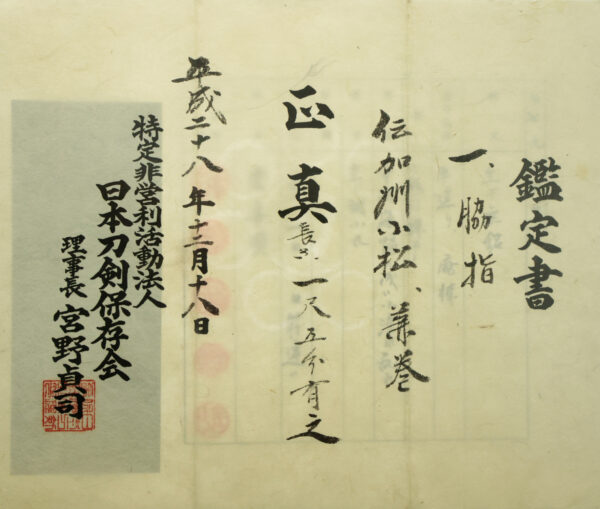 鑑定書
一、脇指
伝加州小松、兼巻
正真
長さ、一尺五分有之
平成二十八年十二月十八日
特定非営利活動法人
日本刀剣保存会
理事長 宮野貞司